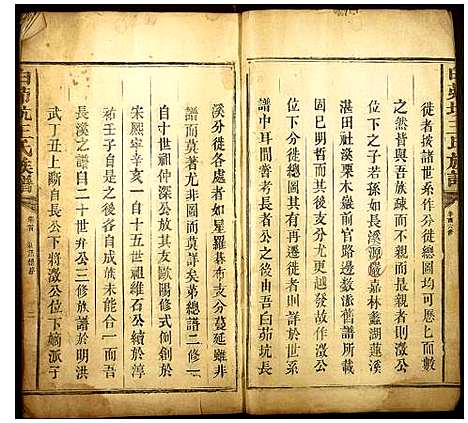 白茆坑王氏族譜
徙者挨諸世系作分徙總圖均可一展而數
之然皆與吾族疎而不最親者則激公
之次子若孫如長溪源嚴嘉林蠡湖蓮溪
湛田社溪栗木嶽前官路邊數派舊譜世
固已明世次支屬更繁越發故作激公
分徙總圖其有再遷徙者則詳於世系
譜中耳間嘗考長者公之後由吾白茆坑長
溪分徙各處者如星羅碁布支分蔓延雖非
譜而莫著尤非圖而莫詳矣第總譜二修一
於十三世祖仲深公放其友歐陽修式剏創於
宋熙寧辛亥一自十五世祖維石公續於淳
祐壬子自是之後各自成族未能合一而吾
長溪之譜自二十世弁公三修族譜於明洪
武丁丑上斷自長公下將激公位下嫡派于
白茆坑王氏族譜
卷首